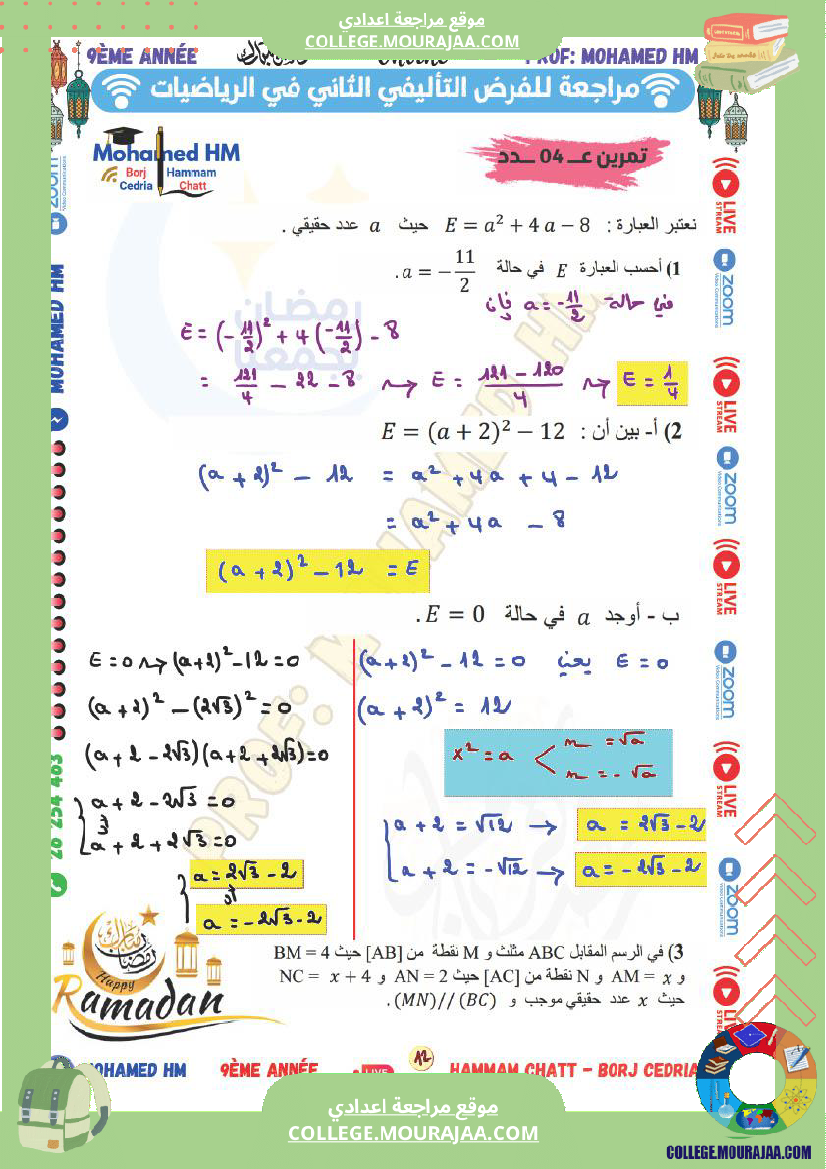 موقع مراجعة اعدادي
COLLEGE.MOURAJAA.COM
9ÈME ANNÉE
PROF: MOHAMED HM
مراجعة للفرض التأليفي الثاني في الرياضيات
Mohamed HM
Borj Cedria
Hammam Chatt
تمرين عـ 04 ـدد
نعتبر العبارة : E = a² + 4 a − 8 حيث a عدد حقيقي .
1) أحسب العبارة E في حالة a = −11/2 .
في حالة a = -11/2 فإن
E = (-11/2)² + 4 (-11/2) - 8
= 121/4 - 22 - 8 ⇝ E = 121 - 120/4 ⇝ E = 1/4
2) أ- بين أن : E = (a + 2)² − 12
(a + 2)² - 12 = a² + 4a + 4 - 12
= a² + 4a - 8
(a + 2)² - 12 = E
ب - أوجد a في حالة E = 0 .
E = 0 يعني (a+2)² - 12 = 0
(a + 2)² = 12
x² = a < x = √a
x = - √a
a + 2 = √12 → a = 2√3 - 2
a + 2 = -√12 → a = - 2√3 - 2
E = 0 ⇝ (a+2)² - 12 = 0
(a + 2)² - (2√3)² = 0
(a + 2 - 2√3)(a + 2 + 2√3) = 0
a + 2 - 2√3 = 0
a + 2 + 2√3 = 0
a = 2√3 - 2
أو
a = - 2√3 - 2
3) في الرسم المقابل ABC مثلث و M نقطة من [AB] حيث BM = 4
و AM = x و N نقطة من [AC] حيث AN = 2 و NC = x + 4
حيث x عدد حقيقي موجب و (MN) // (BC) .
Happy
Ramadan
12
MOHAMED HM
9ÈME ANNÉE
LIVE
HAMMAM CHATT – BORJ CEDRIA
موقع مراجعة اعدادي
COLLEGE.MOURAJAA.COM
COLLEGE.MOURAJAA.COM
zoom
Video Communications
MOHAMED HM
28 254 483
LIVE
STREAM
zoom
Video Communications
LIVE
STREAM
zoom
Video Communications
LIVE
STREAM
zoom
Video Communications
LIVE
STREAM
zoom
Video Communications
LIVE
STREAM